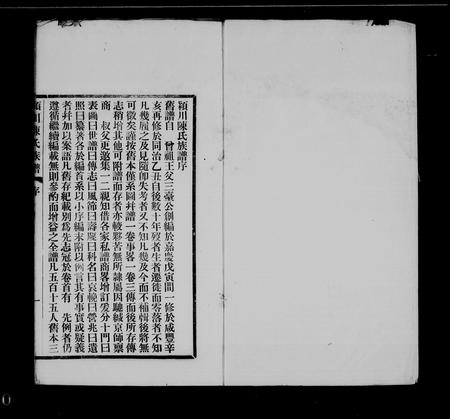 潁川陳氏族譜序
舊譜自 曾祖王父三臺公創編於嘉慶戊寅間一修於咸豐辛
亥再修於同治乙丑自後數十年歿者生者遷徙而零落者不知
凡幾履之及見隨卽失考者又不知凡幾及今而不輯後將無
可徵矣謹按舊本僅系圖幷譜一卷事畧一卷三傳而後所存傳
志稍增其他可附譜而存者亦較夥苦無所隸屬因馳緘京師稟
商 叔父更邀集一二親知借各家私譜商畧增訂爰分十門曰
表曰世譜曰傳志曰風節曰壽曰科名曰哀輓曰塋兆曰遺
照曰纂著各於編首系以小序編末附以例言其有事實或疑義
者幷加以案語凡舊存紀載別爲先志冠於卷首有 先例者仍
遵循繼續編載無則參酌而增益之全譜凡五百十五人舊本三
潁川陳氏族譜 序 一